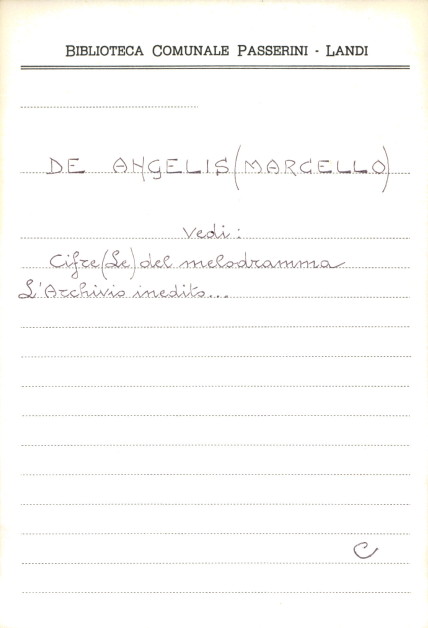 BIBLIOTECA COMUNALE PASSERINI - LANDI
DE ANGELIS (MARCELLO)
Vedi:
Cifre (Le) del melodramma
L'Archivio inedito...
C